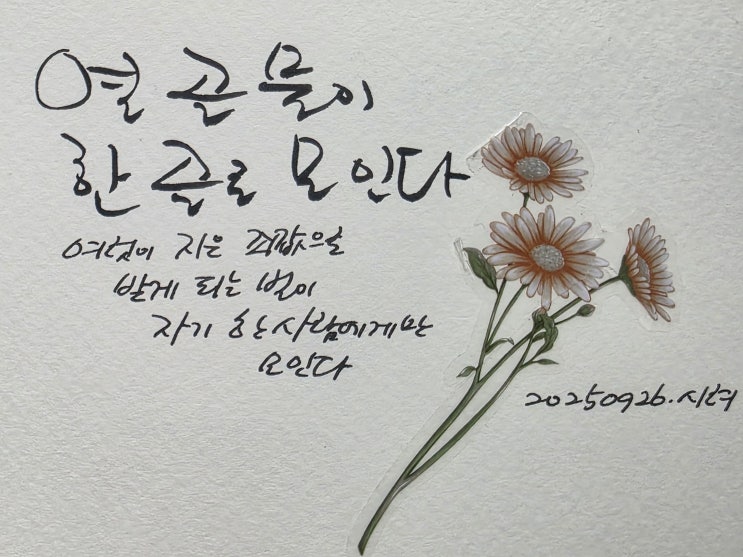 열 곤물이
한 골로 모인다
여럿이 지은 죄값으로
받게 되는 벌이
자기 한 사람에게만
모인다
20250926.